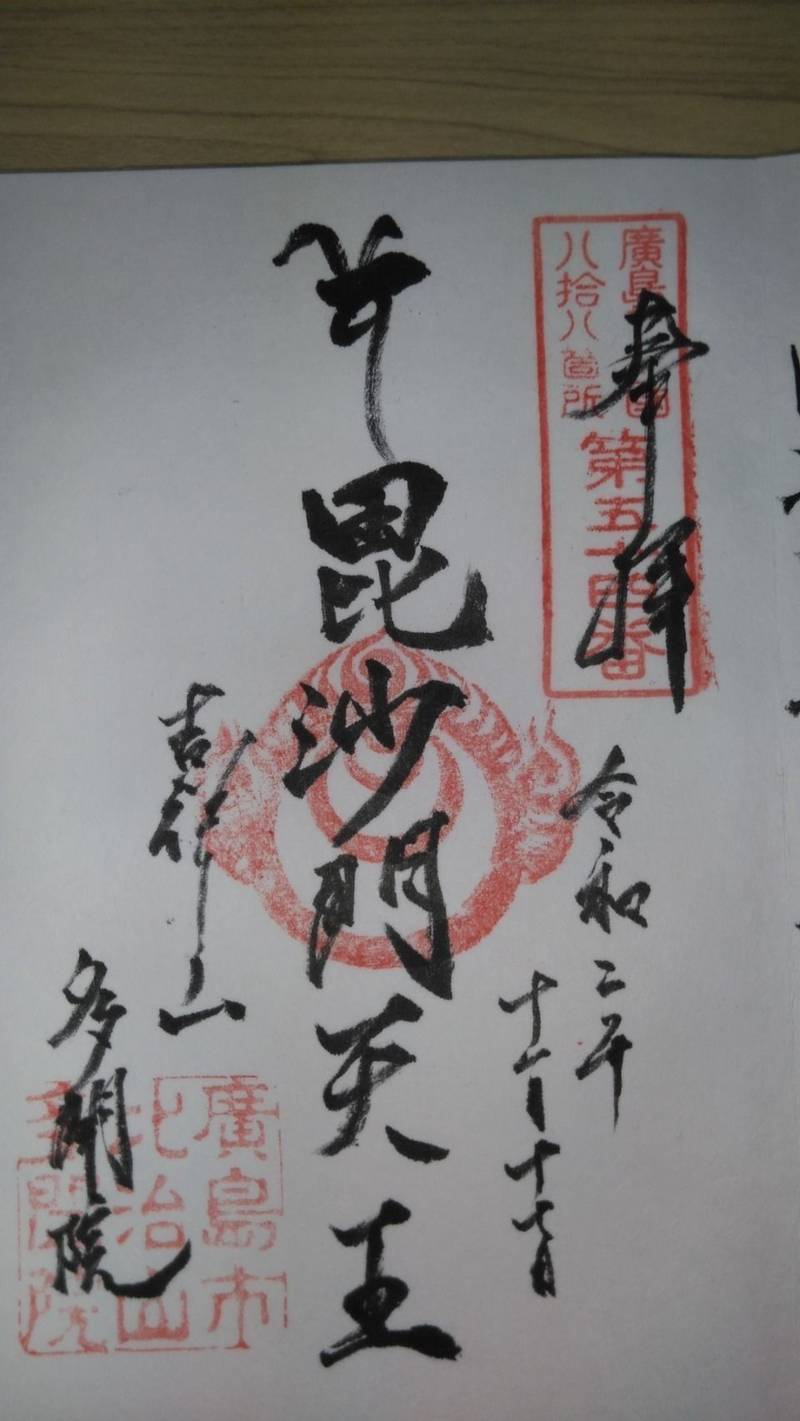 奉拝
廣島新四国
八拾八箇所
第五十四番
令和二年
十一月十七日
毘沙門天王
吉祥山
多聞院
廣島市
比治山
多聞院